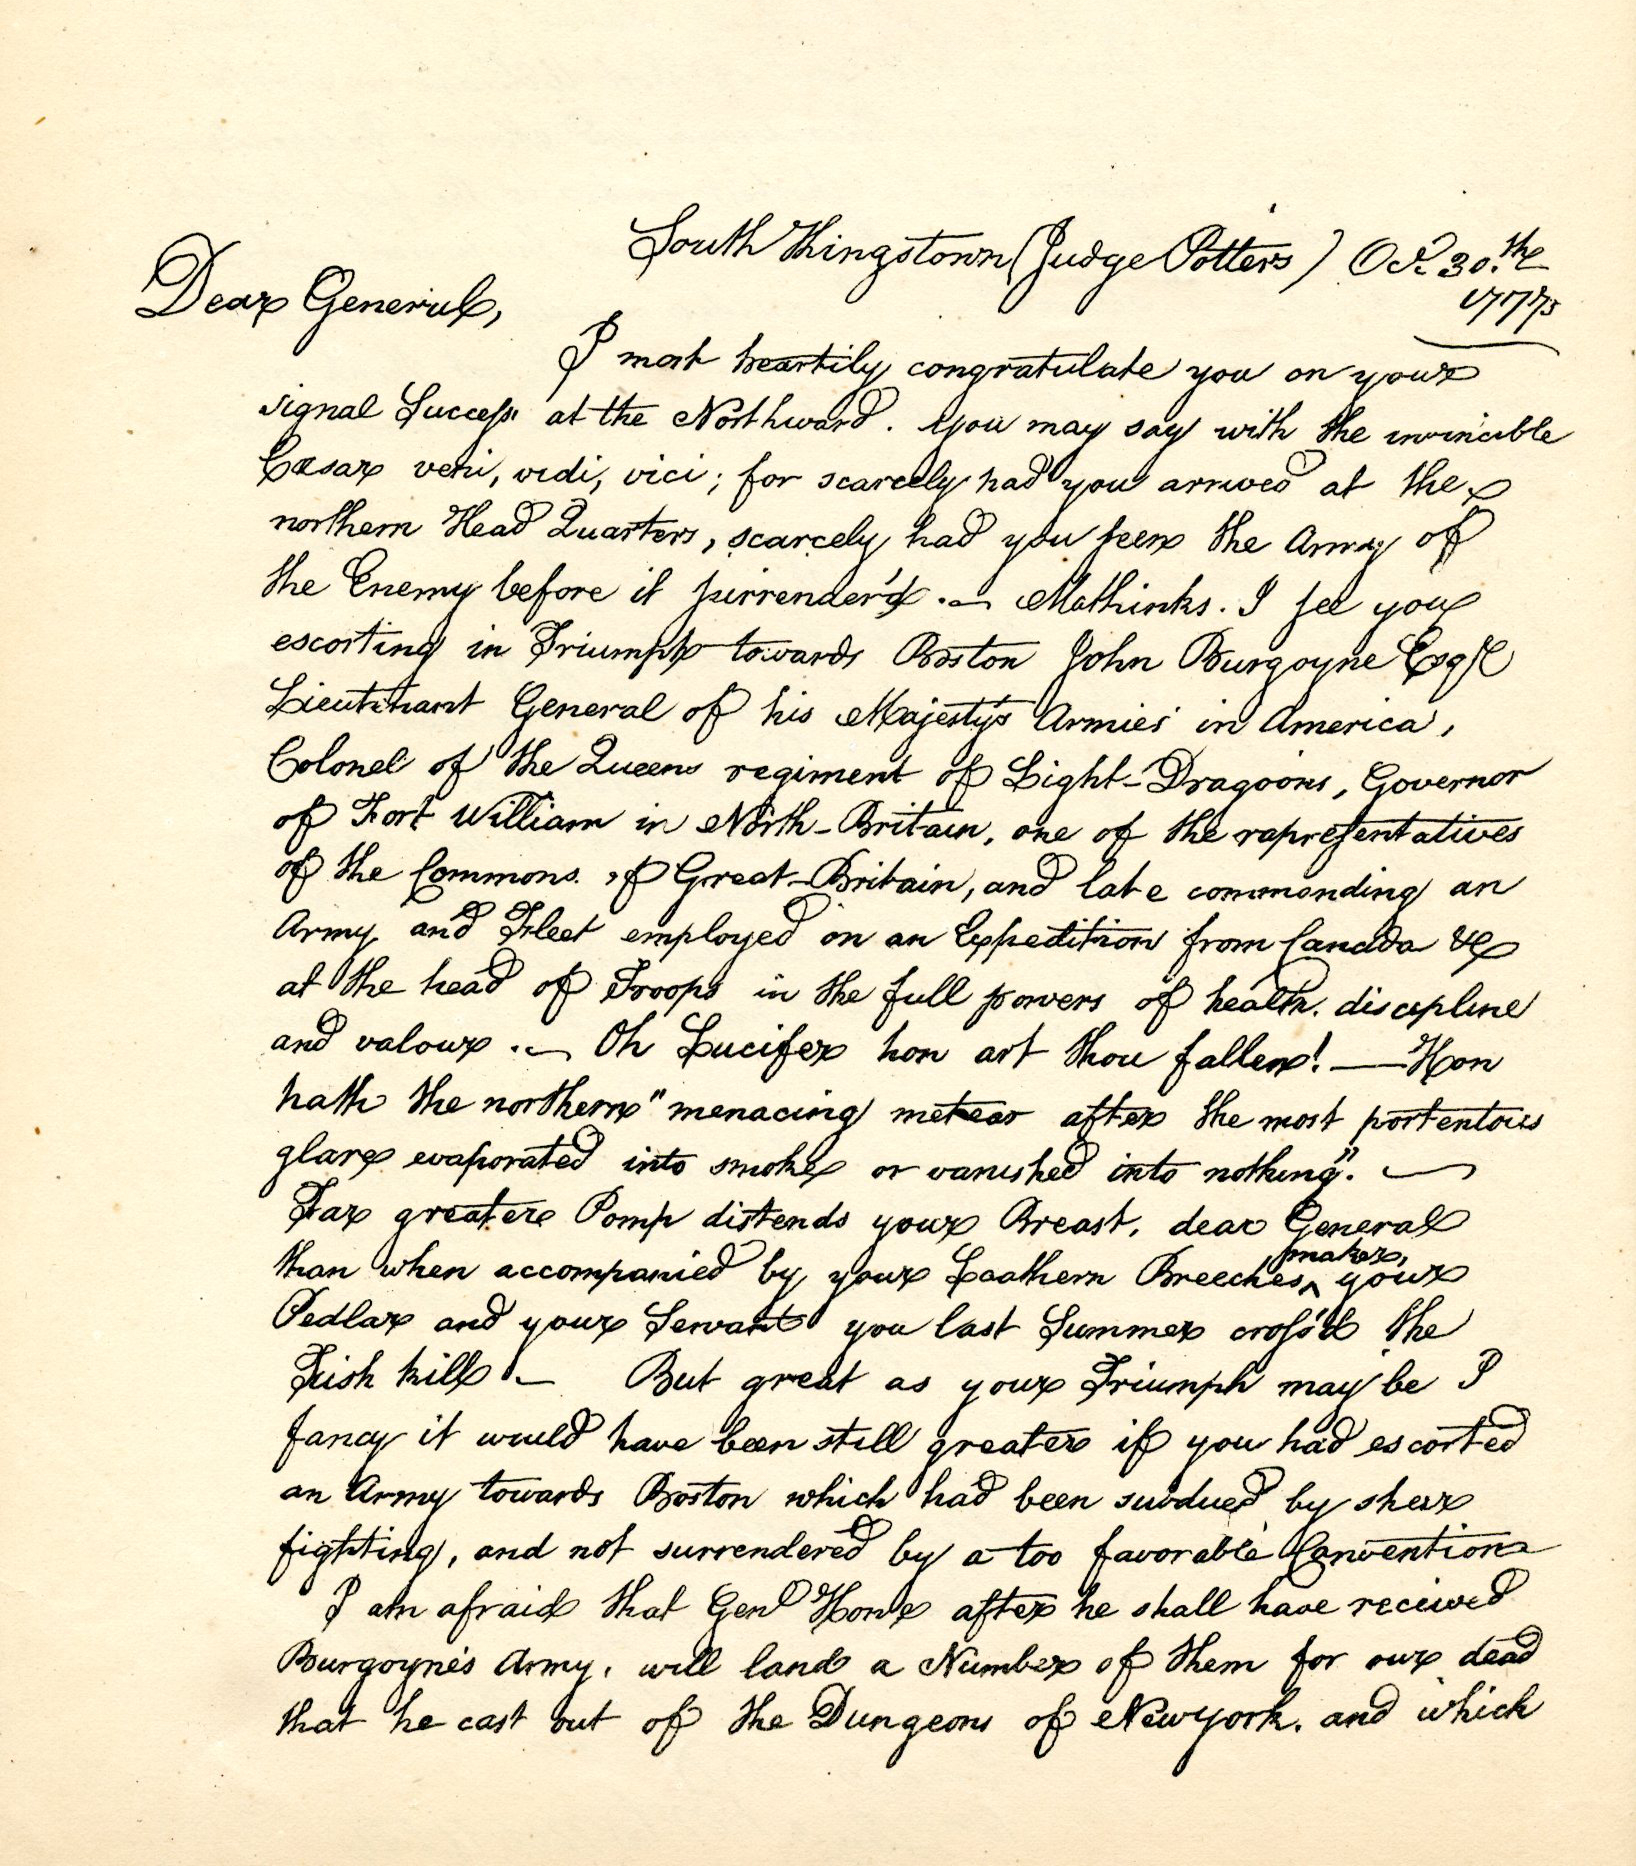 South Kingstown (Judge Potters) Oct. 30.th
1777
Dear General,
I most heartily congratulate you on your
signal Success at the Northward. You may say with the invincible
Cæsar veni, vidi, vici; for scarcely had you arrived at the
northern Head Quarters, scarcely had you seen the Army of
the Enemy before it surrender'd. — Methinks I see you
escorting in Triumph towards Boston John Burgoyne Esqr
Lieutenant General of his Majesty's Armies in America,
Colonel of the Queens regiment of Light-Dragoons, Governor
of Fort William in North-Britain, one of the representatives
of the Commons of Great-Britain, and late commanding an
Army and Fleet employed on an Expedition from Canada &c
at the head of Troops in the full powers of health, discipline
and valour. — Oh Lucifer how art thou fallen! — How
hath the northern "menacing meteor after the most portentous
glare evaporated into smoke or vanished into nothing". —
Far greater Pomp distends your Breast, dear General
than when accompanied by your Leathern Breeches maker, your
Pedlar and your Servant you last Summer cross'd the
Fish kill. — But great as your Triumph may be I
fancy it would have been still greater if you had escorted
an Army towards Boston which had been subdued by sheer
fighting, and not surrendered by a too favorable Convention
I am afraid that Genl Howe after he shall have received
Burgoyne's Army, will land a Number of them for our dead
that he cast out of the Dungeons of Newyork, and which